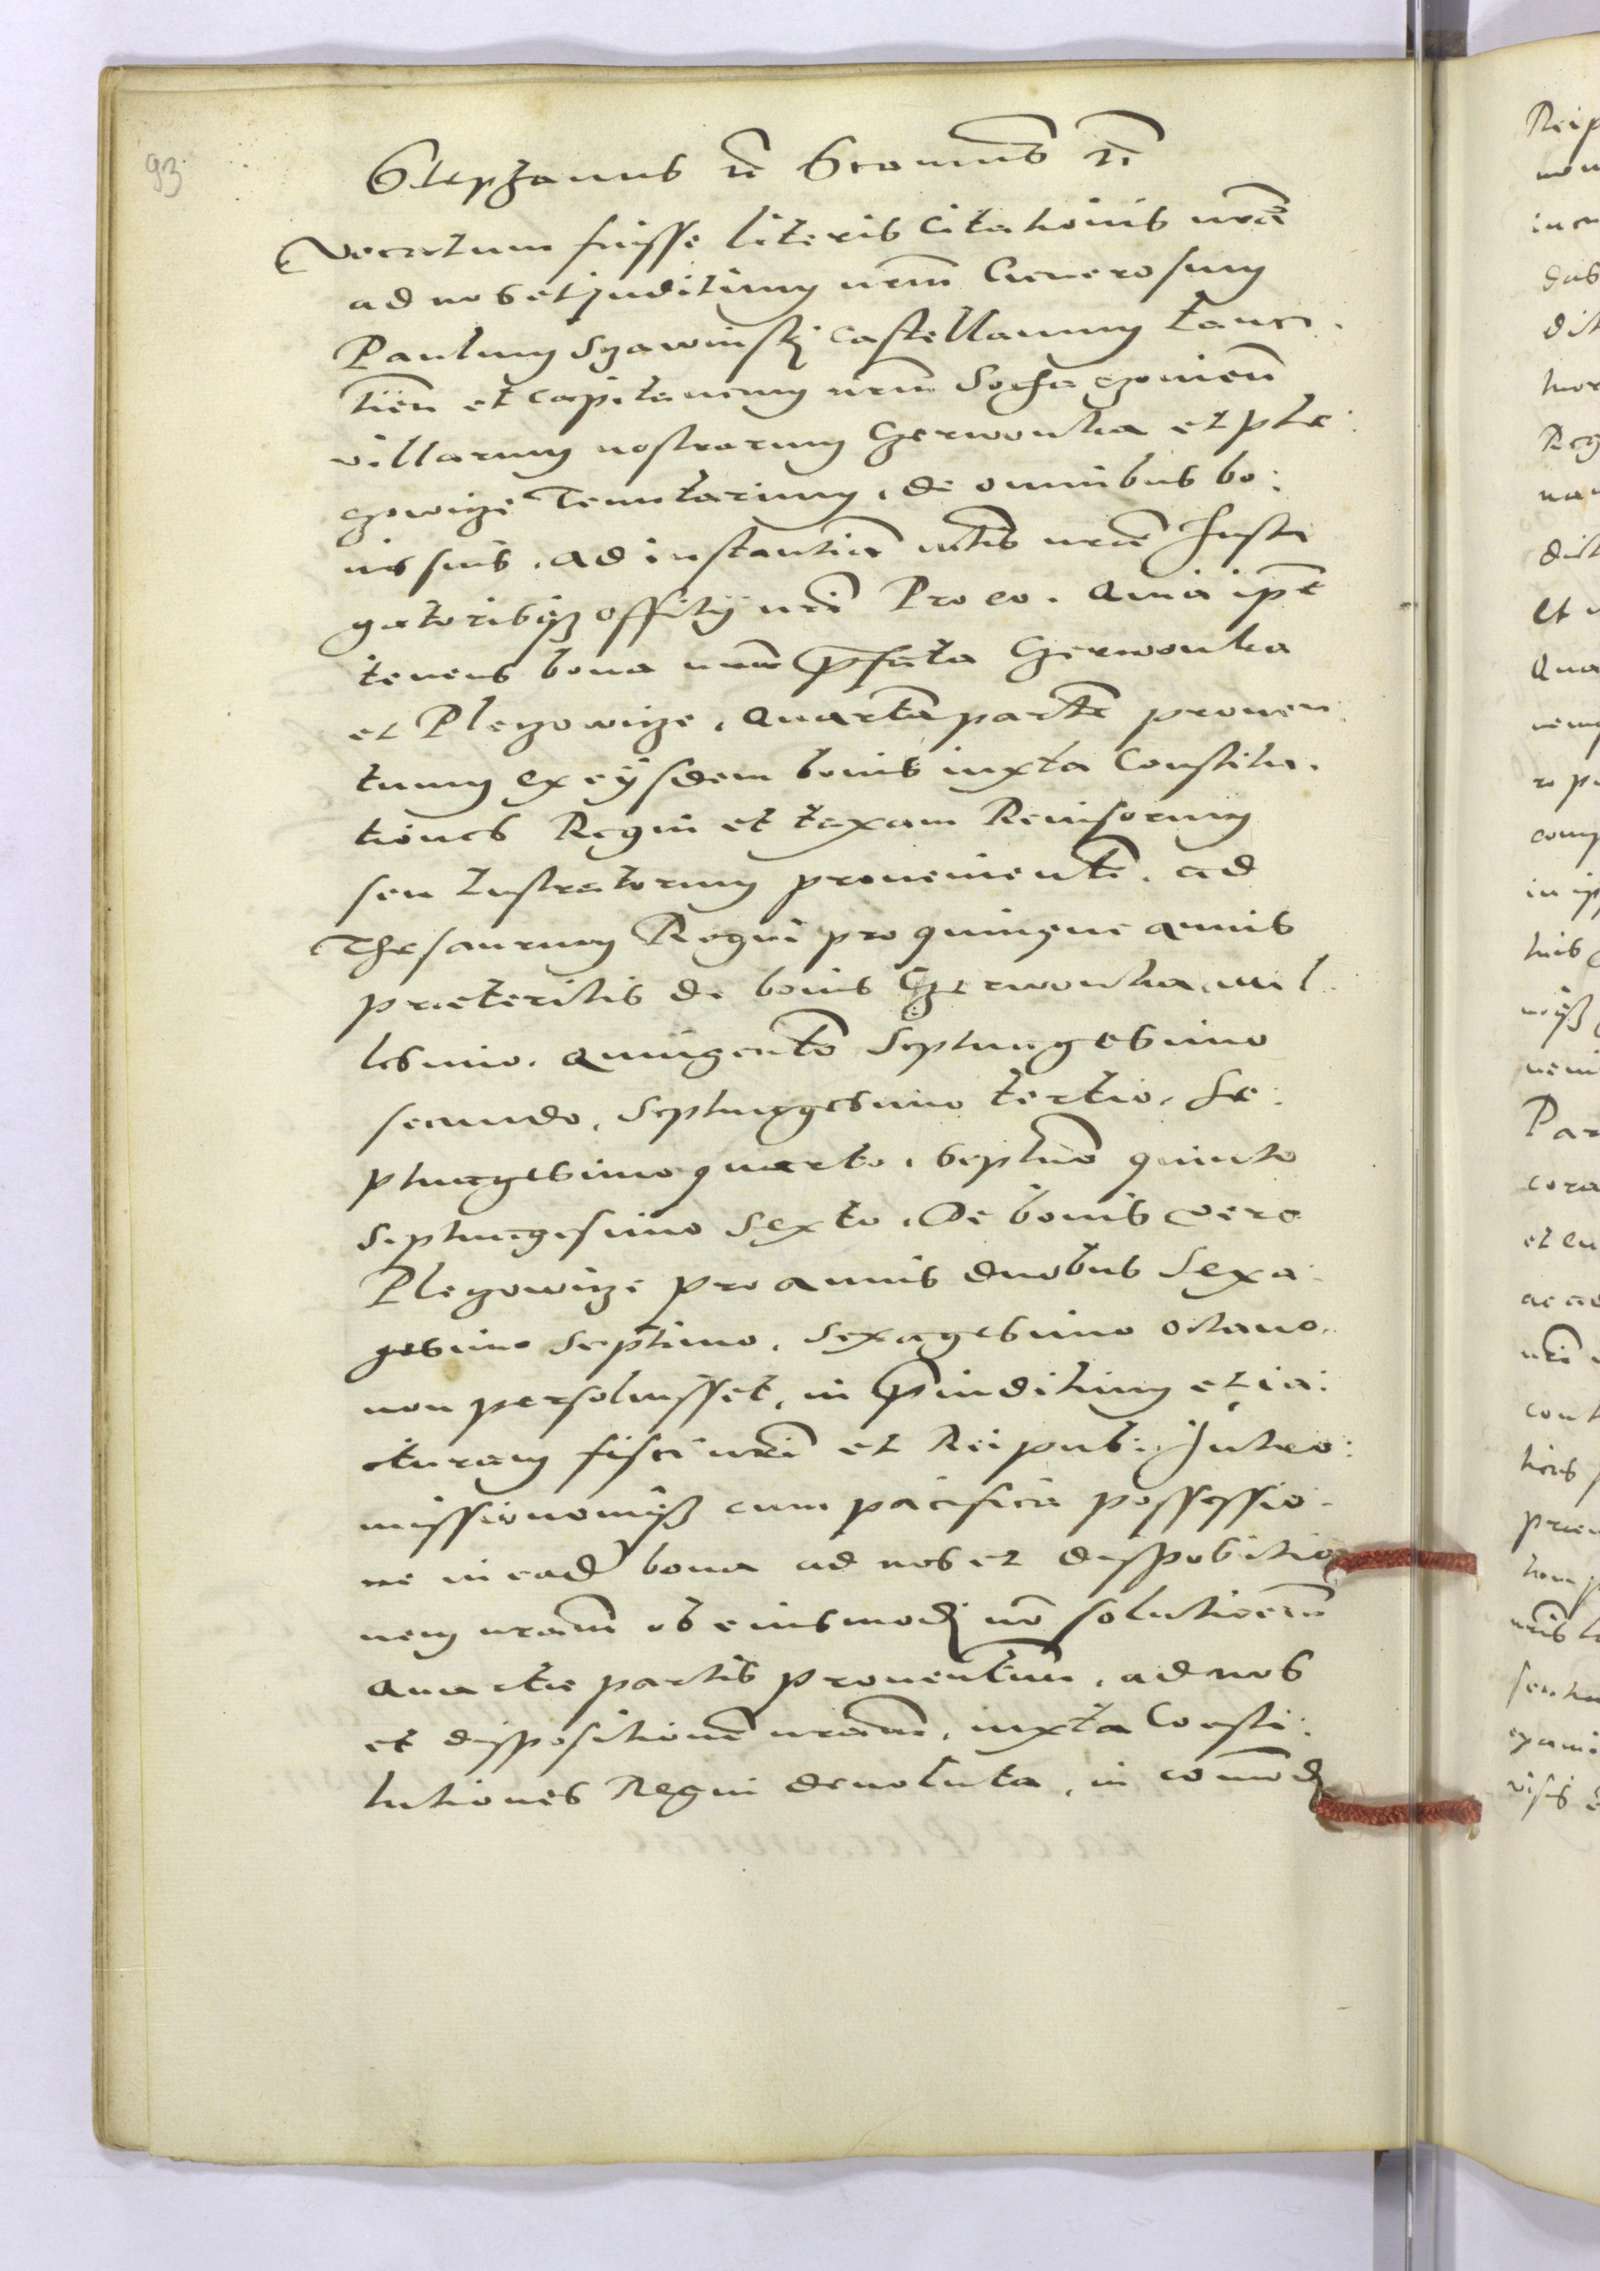 93
Stephanus etc Scomus etc
vocatum fuisse literis Citationis nrae
ad nos et juditium nrm Generosum
Paulum Szawinskj Castellanum Lanci.
tien et Capitaneum nrm Sochaczouien
villarum nostrarum Czerwonka et Ple:
czowicze Tenutarium, de omnibus bo:
nis suis, ad instantia nris Insti
gatorisqz offitij nri Pro eo. Quia ipse
tenens bona nra praefata Czerwonka
et Pleczowicze, quarta parte prouen:
tuum ex eijsdem bonis iuxta Constitu.
tiones Regni et taxam Reuisorum
seu Lustratorum prouenientem, ad
Thesaurum Regni pro quinque annis
praeteritis de bonis Czerwonka, mil
lesimo. quingento Septuagesimo
secundo, Septuagesimo tertio, Se:
ptuagesimo quarto, Septuo quinto
Septuagesimo Sexto, De bonis vero
Pleczowicze pro annis duobus Sexa:
gesimo Septimo, Sexagesimo octauo,
non persoluisset, in praeiuditium et ia:
cturam fisci nri et Reipub: Intro:
missionemqz cum pacifica possessio:
ne in ead bona ad nos et dispositio
nem nram ob eiusmodj no solutionem
quartae partis prouentuum, ad nos
et dispositione nram, iuxta Consti:
tutiones Regni deuoluta, in comod